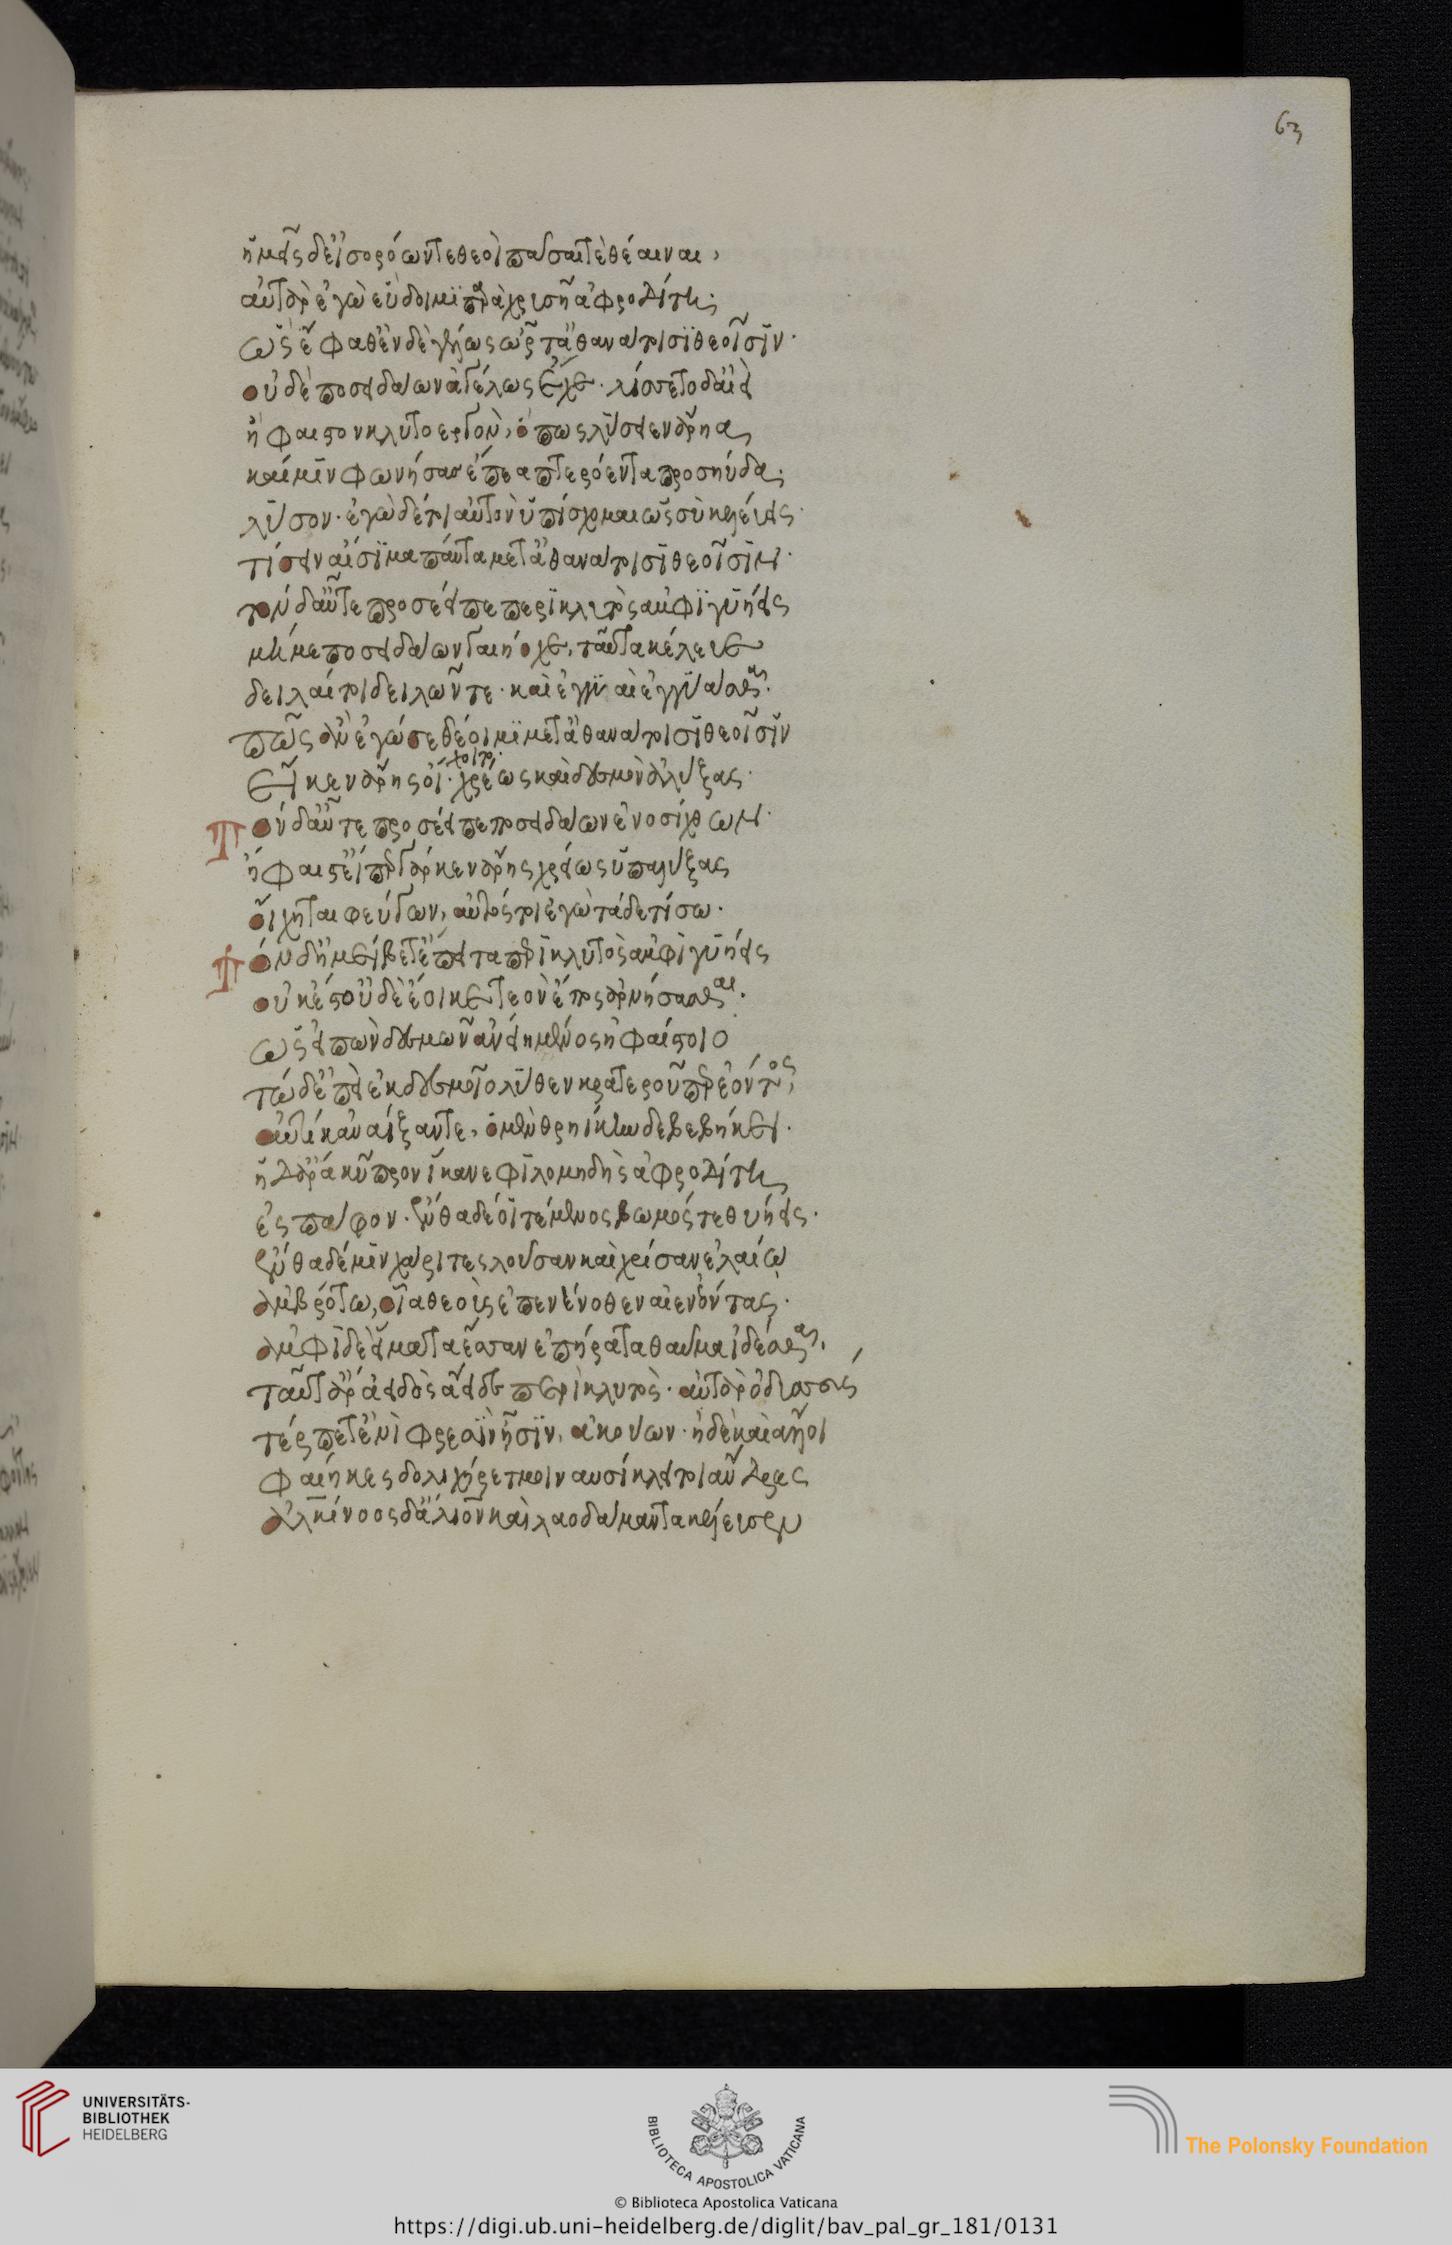 63
ἡμεῖς δ' εἰσορόωντε θεοὶ πᾶσαί τε θέαιναι,
αὐτὰρ ἐγὼ εὕδοιμι παρὰ χρυσῆ ἀφροδίτη·
ὣς ἔφαθ' ἐν δὲ γέλως ὦρτ' ἀθανάτοισι θεοῖσιν·
οὐδὲ ποσειδάωνα γέλως ἔχε· λίσσετο δ' αἰεὶ
ἥφαιστον κλυτοεργὸν, ὅπως λύσειεν ἄρηα,
καί μιν φωνήσας ἔπεα πτερόεντα προσηύδα·
λῦσον· ἐγὼ δέ τοι αὐτὸν ὑπίσχομαι ὡς σὺ κελεύεις·
τίσειν αἴσιμα πάντα μετ' ἀθανάτοισι θεοῖσιν·
τὸν δ' αὖτε προσέειπε περικλυτὸς ἀμφιγυήεις
μή με ποσείδαον γαιήοχε, ταῦτα κέλευε
δειλαί τοι δειλῶν τε· καὶ ἐγγύαι ἐγγυάασθαι·
πῶς ἂν ἐγώ σε δέοιμι μετ' ἀθανάτοισι θεοῖσιν
εἴ κεν ἄρης οἴχοιτο· χρέως καὶ δεσμὸν ἀλύξας·
Τὸν δ' αὖτε προσέειπε ποσειδάων ἐνοσίχθων·
ἥφαιστ' εἴπερ γάρ κεν ἄρης χρείως ὑπαλύξας
οἴχηται φεύγων, αὐτός τοι ἐγὼ τάδε τίσω·
Τὸν δ' ἠμείβετ' ἔπειτα περικλυτὸς ἀμφιγυήεις
οὐκ ἔστ' οὐδὲ ἔοικε τεὸν ἔπος ἀρνήσασθαι·
ὣς εἰπὼν δεσμῶν ἀνίει μένος ἡφαίστοιο
τὼ δ' ἐπεὶ ἐκ δεσμοῖο λύθεν κρατεροῦ περ ἐόντος,
αὐτίκ' ἀναΐξαντε, ὁ μὲν θρήκην δὲ βεβήκει·
ἡ δ' ἄρα κύπρον ἵκανε φιλομμηδὴς ἀφροδίτη
ἐς πάφον· ἔνθα δέ οἱ τέμενος βωμός τε θυήεις·
ἔνθα δέ μιν χάριτες λοῦσαν καὶ χρῖσαν ἐλαίω
ἀμβρότω, οἷα θεοὺς ἐπενήνοθεν αἰὲν ἐόντας·
ἀμφὶ δὲ εἵματα ἕσσαν ἐπήρατα θαῦμα ἰδέσθαι,
ταῦτ' ἄρ' ἀοιδὸς ἄειδε περικλυτὸς· αὐτὰρ ὀδυσσεὺς
τέρπετ' ἐνὶ φρεσὶν ἧσιν, ἀκούων· ἠδὲ καὶ ἄλλοι
φαίηκες δολιχήρετμοι ναυσίκλειτοι ἄνδρες
ἀλκίνοος δ' ἅλιον καὶ λαοδάμαντα κέλευσεν
UNIVERSITÄTS-
BIBLIOTHEK
HEIDELBERG
BIBLIOTECA APOSTOLICA VATICANA
The Polonsky Foundation
© Biblioteca Apostolica Vaticana
https://digi.ub.uni-heidelberg.de/diglit/bav_pal_gr_181/0131